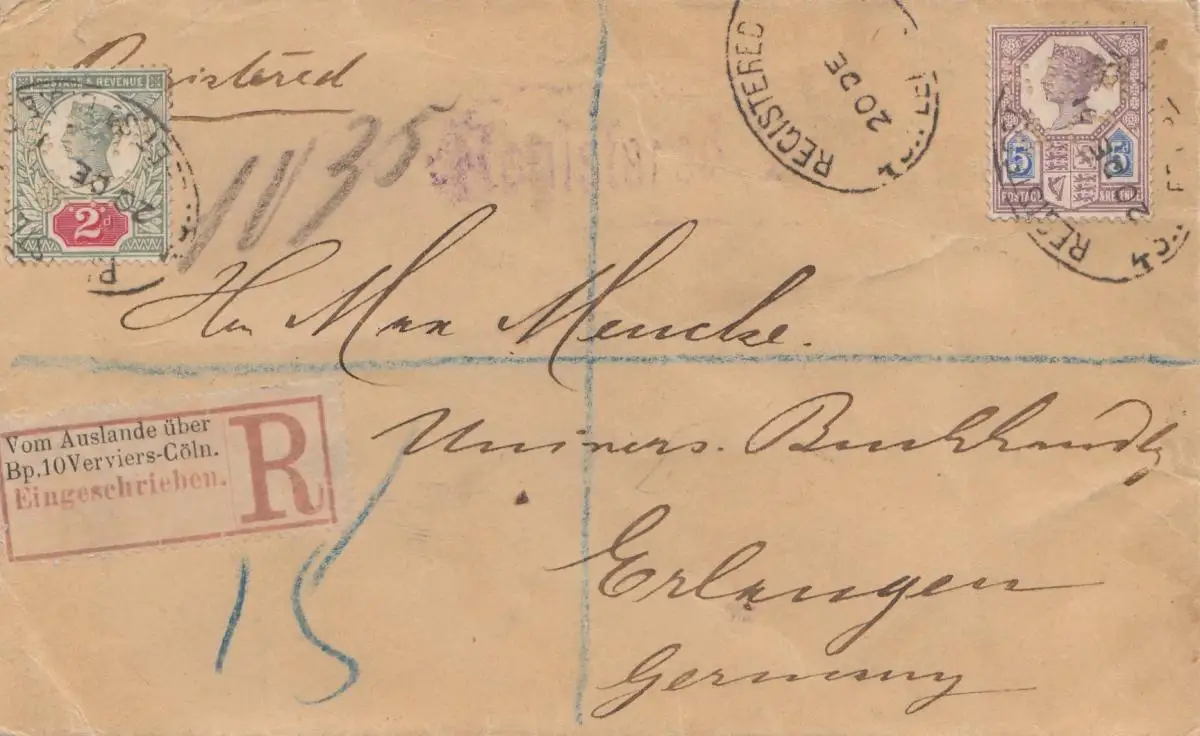 Registered
POSTAGE & REVENUE
2d
REGISTERED
20 DE
5 5
POSTAGE & REVENUE
20 DE
20 DE
1135
Herr Max Mencke.
Univers. Buchhandlg
Erlangen
Germany
Vom Auslande über
Bp.10 Verviers-Cöln.
Eingeschrieben.
R
15